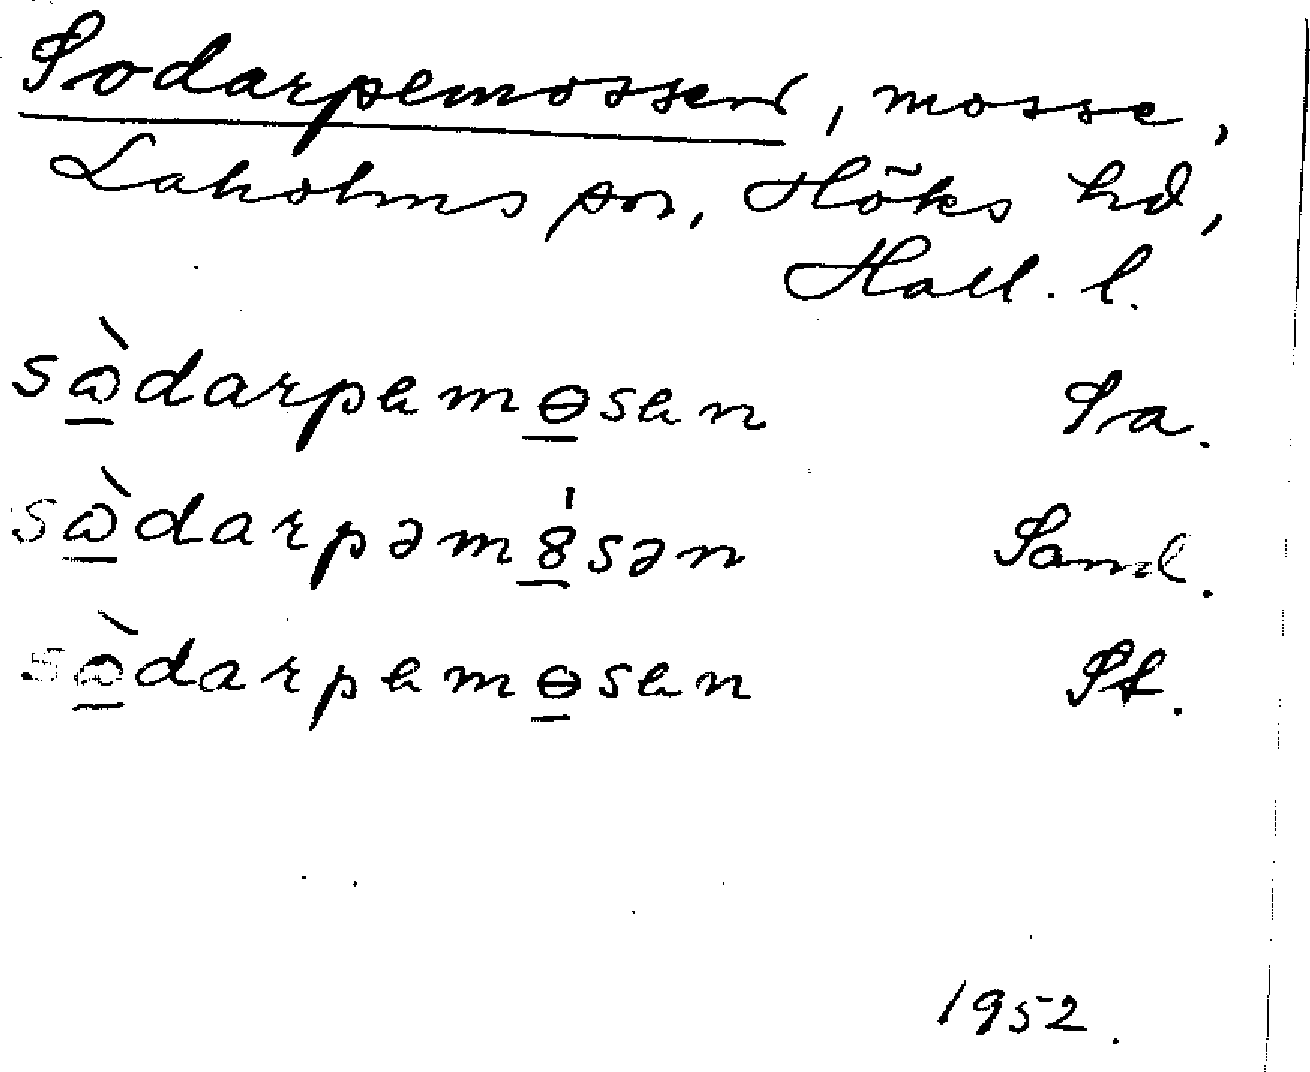 Sodarpemossen, mosse,
Laholms sn, Höks hd,
Hall. l.
sɷ̲̀darpemɵ̲sen Sa.
sɷ̲̀darpəm8̲́sən Sand.
sɷ̲̀darpemɵ̲sen St.
1952.